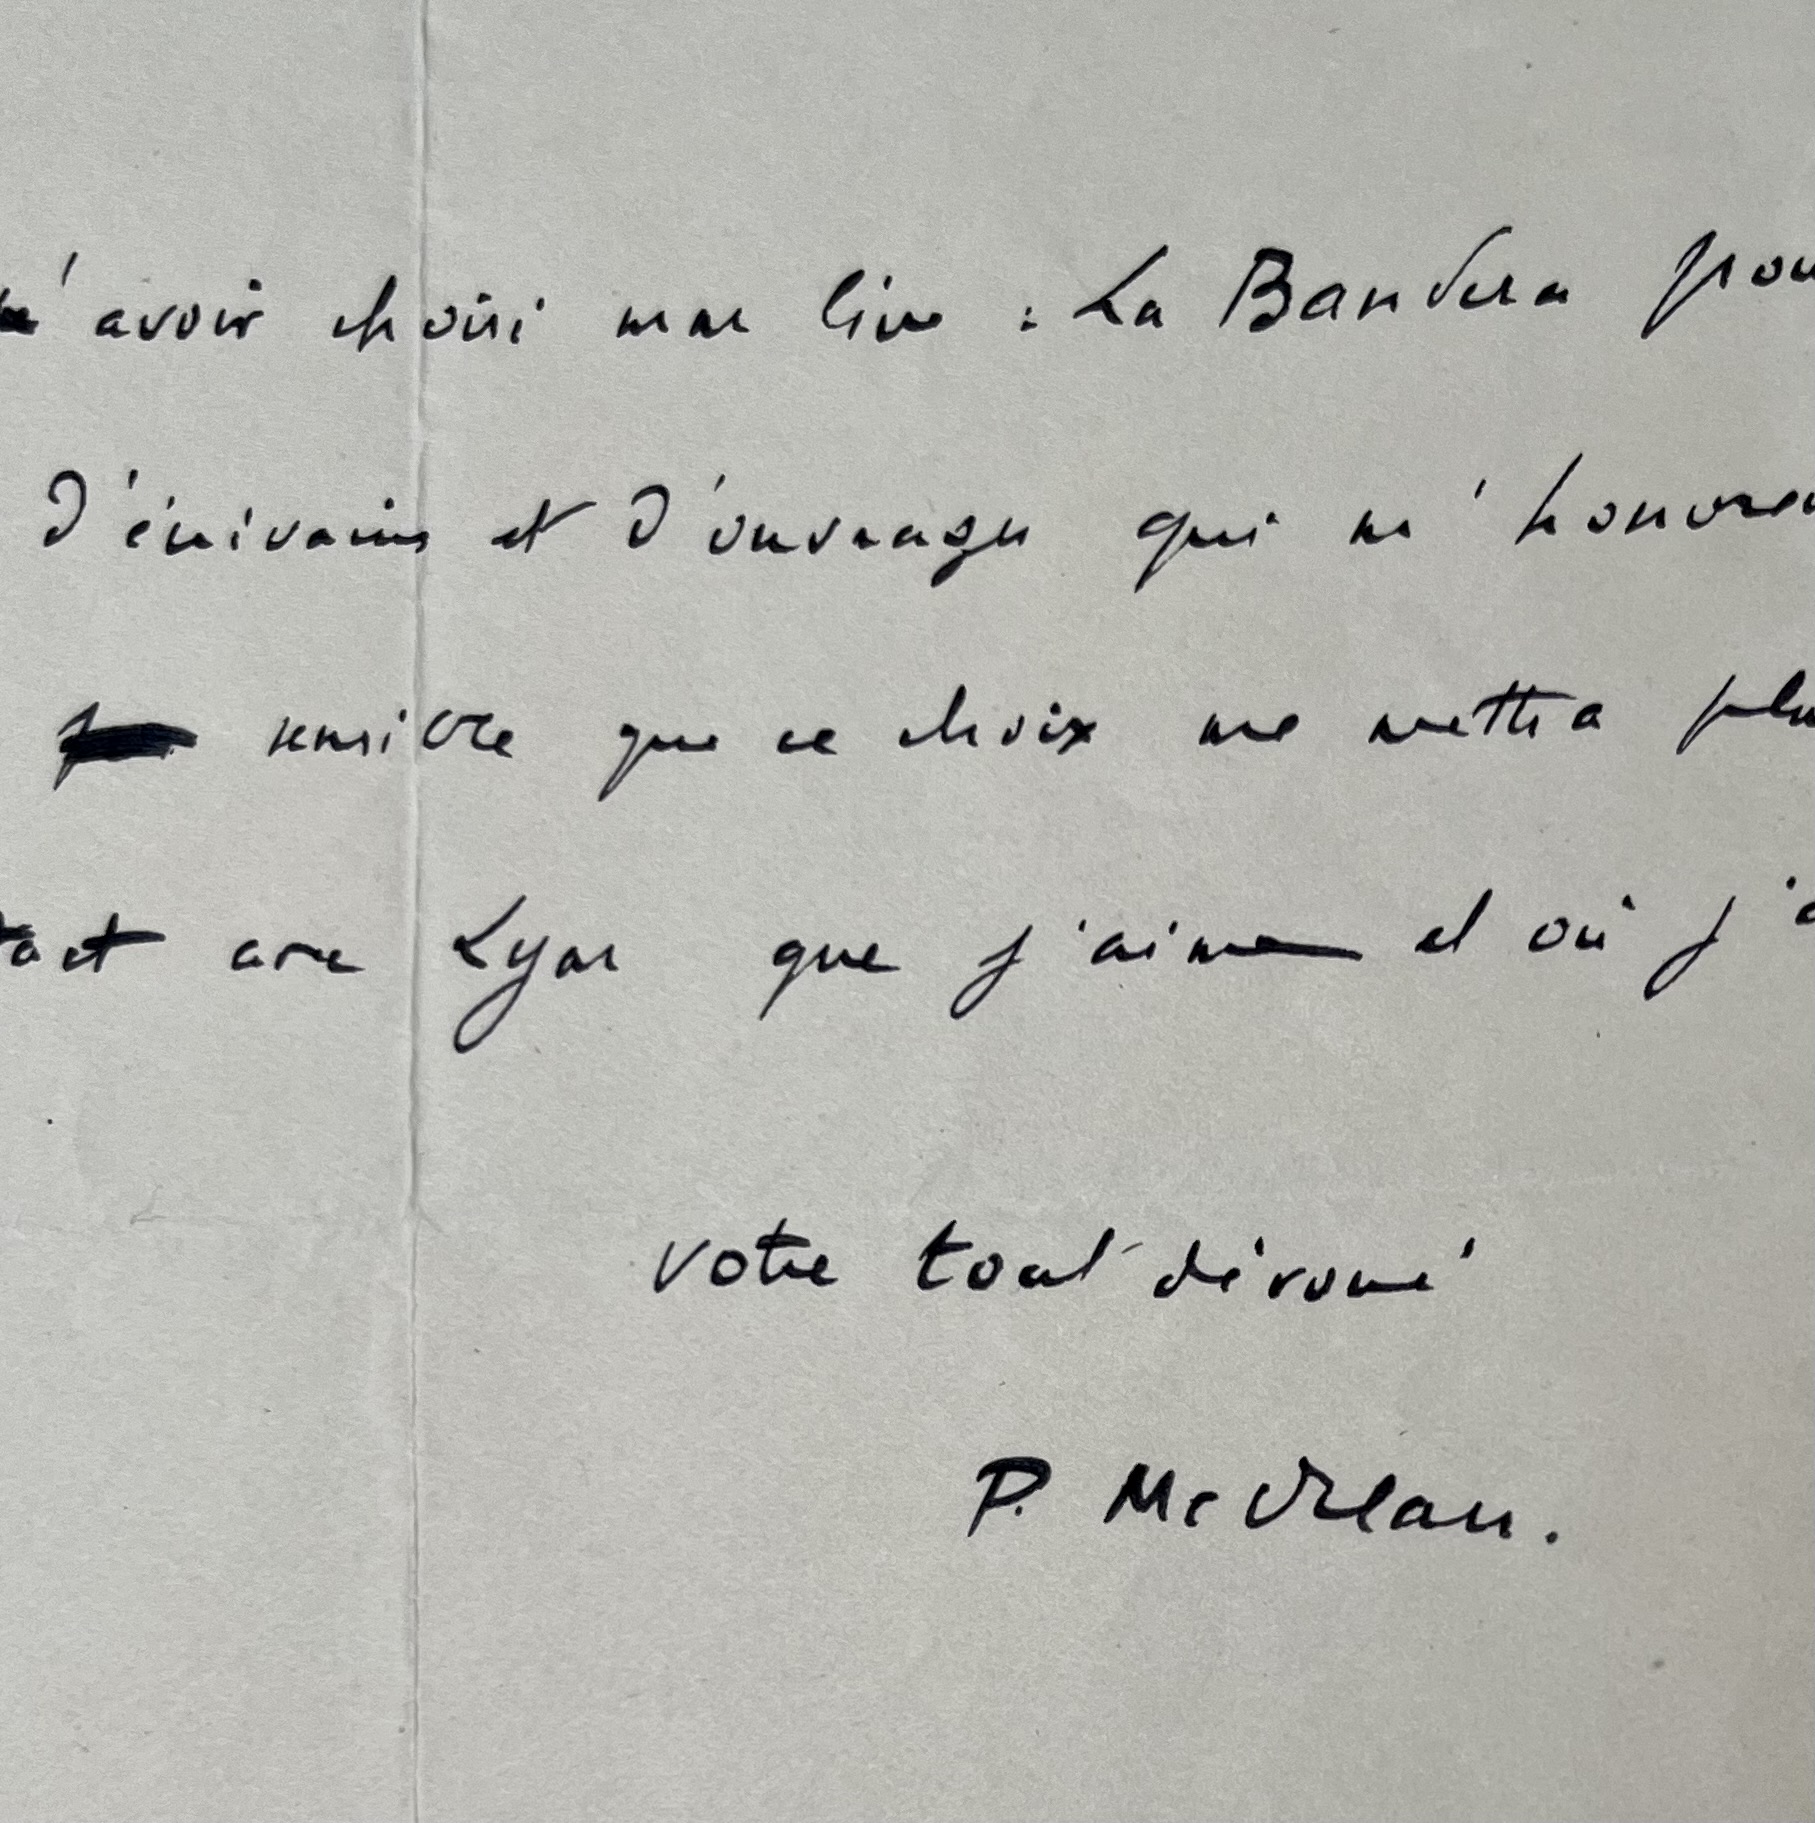 m'avoir choisi mon livre : La Bandera pou
d'écrivains et d'ouvrages qui m'honoren
sensible que ce choix me mettra plu
tact avec Lyon que j'aime et où j'a
votre tout dévoué
P. Mc Orlan.